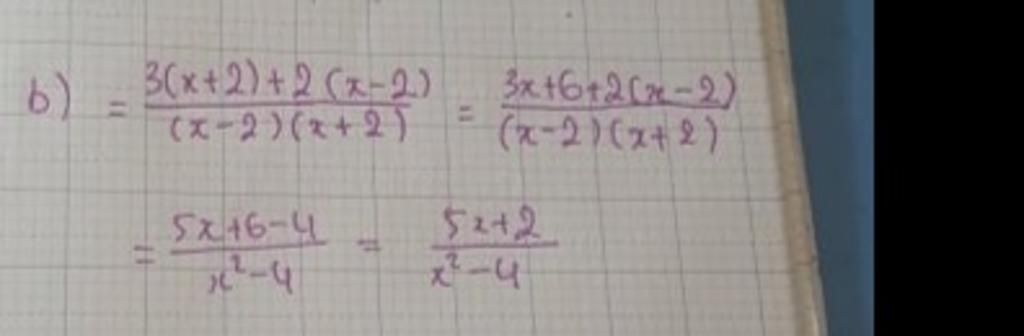 b) = \frac{3(x+2)+2(x-2)}{(x-2)(x+2)} = \frac{3x+6+2(x-2)}{(x-2)(x+2)}
= \frac{5x+6-4}{x²-4} = \frac{5x+2}{x²-4}